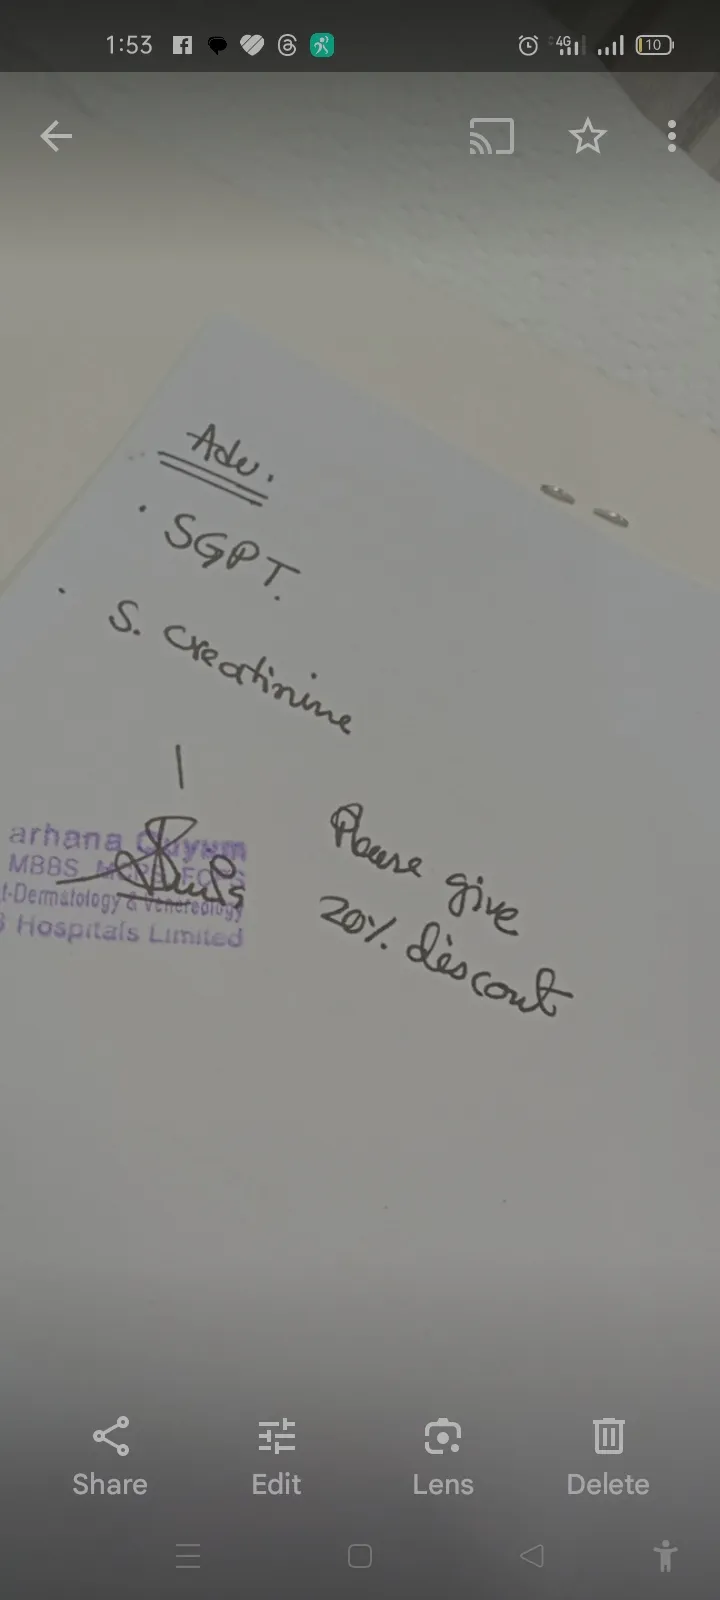 1:53
4G
10
Adv.
• SGPT.
• S. creatinine
arhana Quyum
MBBS, MCPS, FCPS
t-Dermatology & Venereology
Hospitals Limited
Please give
20% discount
Share
Edit
Lens
Delete